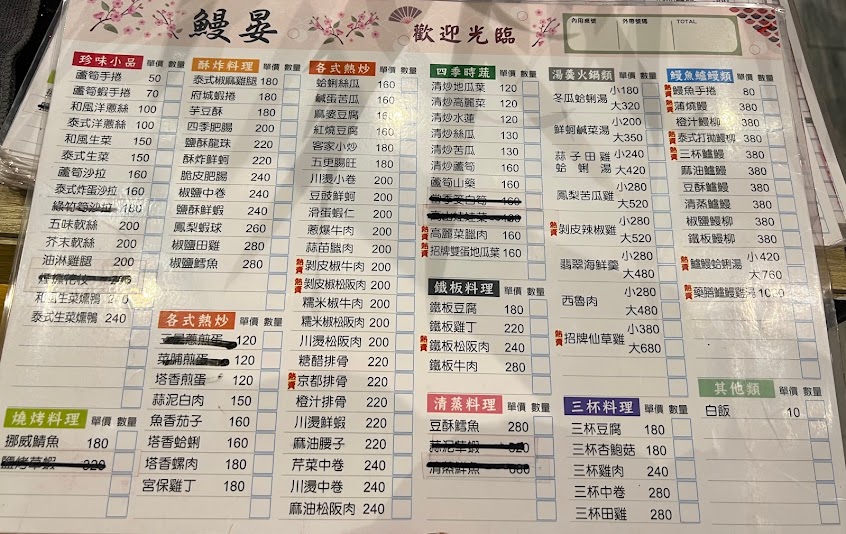 鰻晏
歡迎光臨
內用桌號 外帶號碼 TOTAL
珍味小品 單價 數量
蘆筍手捲 50
蘆筍蝦手捲 70
和風洋蔥絲 100
泰式洋蔥絲 100
和風生菜 150
泰式生菜 150
蘆筍沙拉 160
泰式炸蛋沙拉 160
綠竹筍沙拉 180
五味軟絲 200
芥末軟絲 200
油淋雞腿 200
200
和風生菜燻鴨 240
泰式生菜燻鴨 240
燒烤料理 單價 數量
挪威鯖魚 180
鹽烤草蝦 320
酥炸料理 單價 數量
泰式椒麻雞腿 180
府城蝦捲 160
芋豆酥 180
四季肥腸 200
鹽酥龍珠 220
酥炸鮮蚵 220
脆皮肥腸 240
椒鹽中卷 240
鹽酥鮮蝦 240
鳳梨蝦球 260
椒鹽田雞 280
椒鹽鱈魚 280
各式熱炒 單價 數量
蔥煎蛋 120
菜脯煎蛋 120
塔香煎蛋 120
蒜泥白肉 150
魚香茄子 160
塔香蛤蜊 160
塔香螺肉 180
宮保雞丁 180
各式熱炒 單價 數量
蛤蜊絲瓜 160
鹹蛋苦瓜 160
麻婆豆腐 160
紅燒豆腐 160
客家小炒 180
五更腸旺 180
川燙小卷 200
豆豉鮮蚵 200
滑蛋蝦仁 200
蔥爆牛肉 200
蒜苗臘肉 200
熱賣 剝皮椒牛肉 200
熱賣 剝皮椒松阪肉 200
糯米椒牛肉 200
糯米椒松阪肉 200
川燙松阪肉 200
糖醋排骨 220
熱賣 京都排骨 220
橙汁排骨 220
川燙鮮蝦 220
麻油腰子 220
芹菜中卷 240
川燙中卷 240
麻油松阪肉 240
四季時蔬 單價 數量
清炒地瓜葉 120
清炒高麗菜 120
清炒水蓮 120
清炒絲瓜 130
清炒苦瓜 130
清炒蘆筍 160
蘆筍山藥 160
160
120
熱賣 高麗菜臘肉 160
熱賣 招牌雙蛋地瓜葉 160
鐵板料理 單價 數量
鐵板豆腐 180
鐵板雞丁 220
熱賣 鐵板松阪肉 240
鐵板牛肉 280
清蒸料理 單價 數量
豆酥鱈魚 280
蒜泥草蝦 320
清蒸鮮魚 680
湯羹火鍋類 單價 數量
冬瓜蛤蜊湯 小180 大320
鮮蚵鹹菜湯 小200 大350
蒜子田雞蛤蜊湯 小240 大420
鳳梨苦瓜雞 小280 大520
熱賣 剝皮辣椒雞 小280 大520
翡翠海鮮羹 小280 大480
西魯肉 小280 大480
熱賣 招牌仙草雞 小380 大680
三杯料理 單價 數量
三杯豆腐 180
三杯杏鮑菇 180
三杯雞肉 240
三杯中卷 280
三杯田雞 280
鰻魚鱸鰻類 單價 數量
熱賣 鰻魚手捲 80
熱賣 蒲燒鰻 380
橙汁鰻柳 380
熱賣 泰式打拋鰻柳 380
熱賣 三杯鱸鰻 380
麻油鱸鰻 380
豆酥鱸鰻 380
清蒸鱸鰻 380
椒鹽鰻柳 380
鐵板鰻柳 380
熱賣 鱸鰻蛤蜊湯 小420 大760
熱賣 藥膳鱸鰻雞湯
其他類 單價 數量
白飯 10